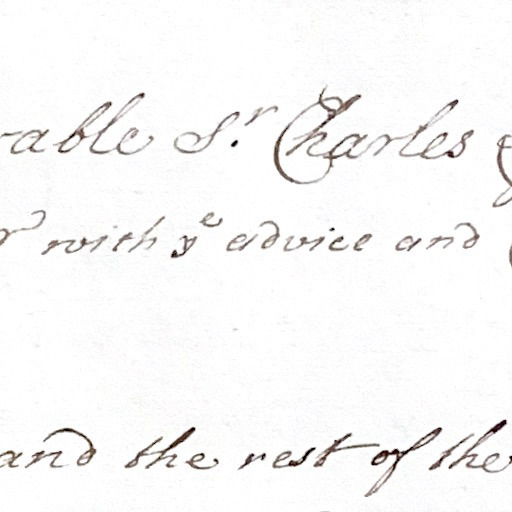 rable S.r Charles
r with ye advice and
and the rest of the